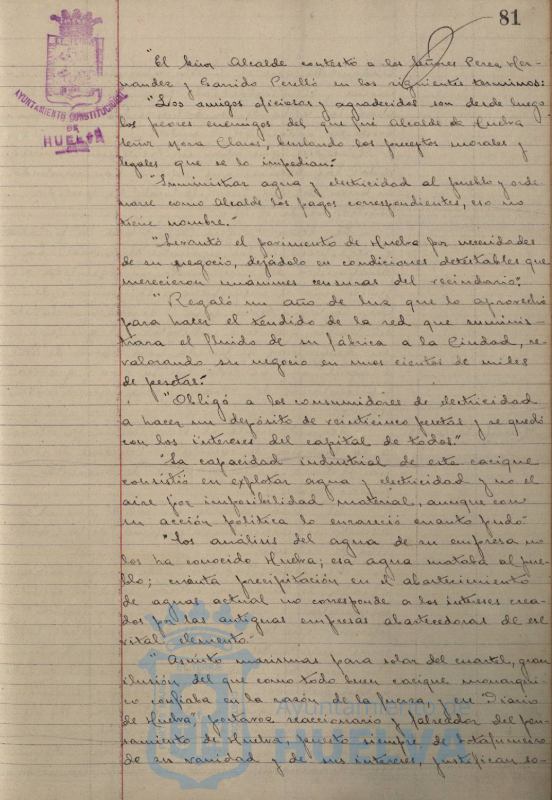 81
AYUNTAMIENTO CONSTITUCIONAL
DE
HUELVA
"El Señor Alcalde contestó a los señores Perea Her-
nandez y Garrido Perelló en los siguientes terminos:
"Los amigos oficiosos y agradecidos son desde luego
los peores enemigos del que fué Alcalde de Huelva
señor Mora Claros, burlando los preceptos morales y
legales que se lo impedian."
"Suministrar agua y electricidad al pueblo y orde-
narse como Alcalde los pagos correspondientes, eso no
tiene nombre."
"Levantó el pavimento de Huelva por necesidades
de su negocio, dejándolo en condiciones detestables que
merecieron unánimes censuras del vecindario".
"Regaló un año de luz que lo aprovechó
para hacer el tendido de la red que suminis-
trara el fluido de su fábrica a la Ciudad, re-
valorando su negocio en unos cientos de miles
de pesetas."
"Obligó a los consumidores de electricidad
a hacer un depósito de veinticinco pesetas y se quedó
con los intereses del capital de todos"
"La capacidad industrial de este cacique
consistió en explotar agua y electricidad y no el
aire por imposibilidad material, aunque con
su acción política lo enrareció cuanto pudo"
"Los análisis del agua de su empresa no
los ha conocido Huelva; esa agua mataba al pue-
blo; cuánta precipitación en el abastecimiento
de aguas actual no corresponde a los intereses crea-
dos por las antiguas empresas abastecedoras de ese
vital elemento"
"Asunto marismas para solar del cuartel, gran
ilusión del que como todo buen cacique monárqui-
co confiaba en la razón de la fuerza, y su "Diario
de Huelva", portavoz reaccionario y falseador del pen-
samiento de Huelva, puesto siempre de botafumeiro
de su vanidad y de sus intereses, justifican so-
Ayuntamiento de
HUELVA